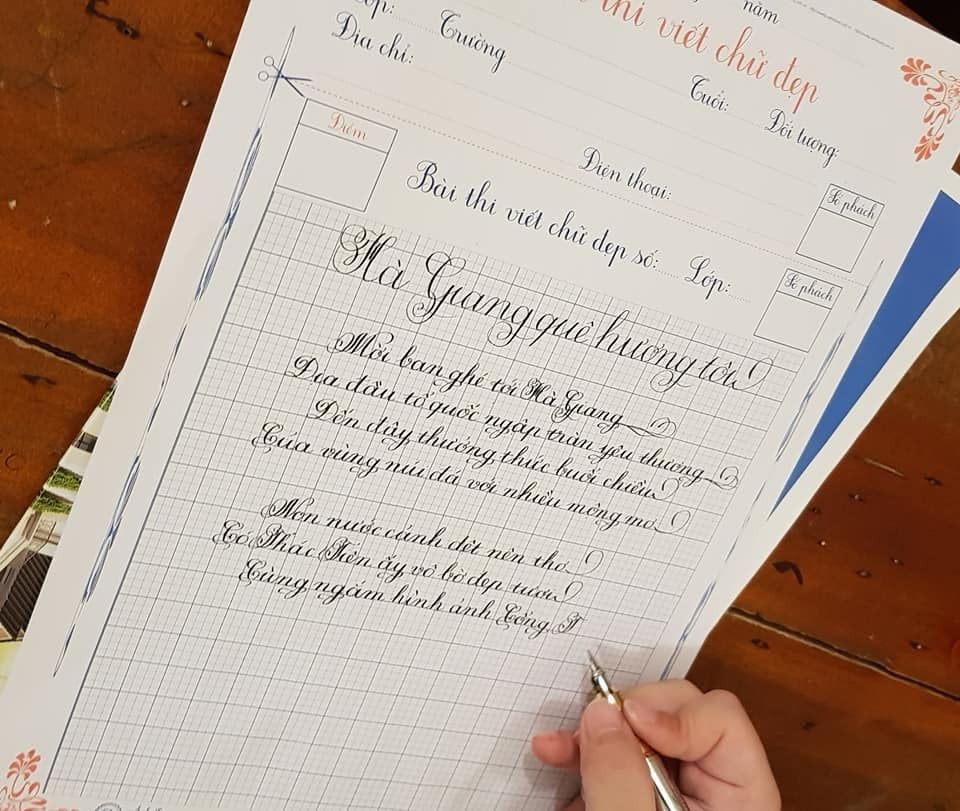 năm
thi viết chữ đẹp
Lớp: Trường
Tuổi: Đối tượng:
Địa chỉ:
Điện thoại:
Điểm
Số phách
Bài thi viết chữ đẹp số: Lớp:
Số phách
Hà Giang quê hương tôi
Mời bạn ghé tới Hà Giang
Địa đầu tổ quốc ngập tràn yêu thương
Đến đây thưởng thức buổi chiều
Của vùng núi đá với nhiều mộng mơ
Non nước cảnh dệt nên thơ
Cô Thác Tiên ấy vô bờ đẹp tươi
Cùng ngắm hình ảnh Cổng T